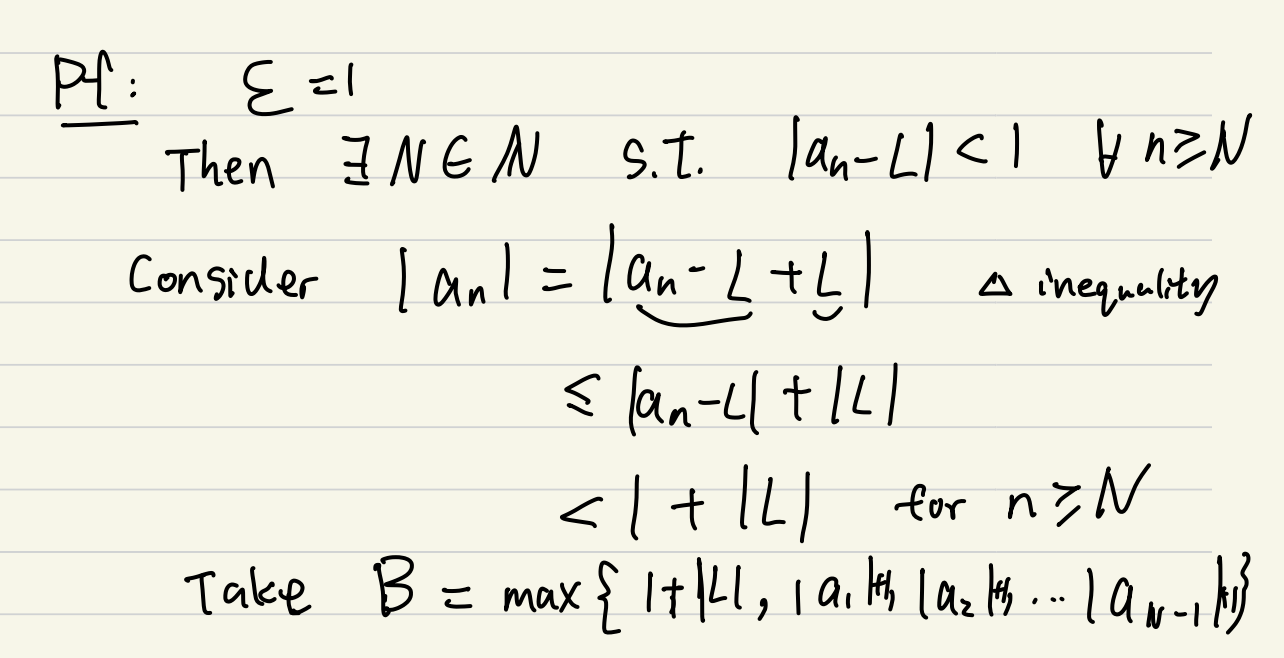 Pf: ε = 1
Then ∃ N ∈ ℕ s.t. |aₙ - L| < 1 ∀ n ≥ N
Consider |aₙ| = |aₙ - L + L| △ inequality
≤ |aₙ - L| + |L|
< 1 + |L| for n ≥ N
Take B = max{ 1+|L|, |a₁|+1, |a₂|+1, ... |a_{N-1}|+1}